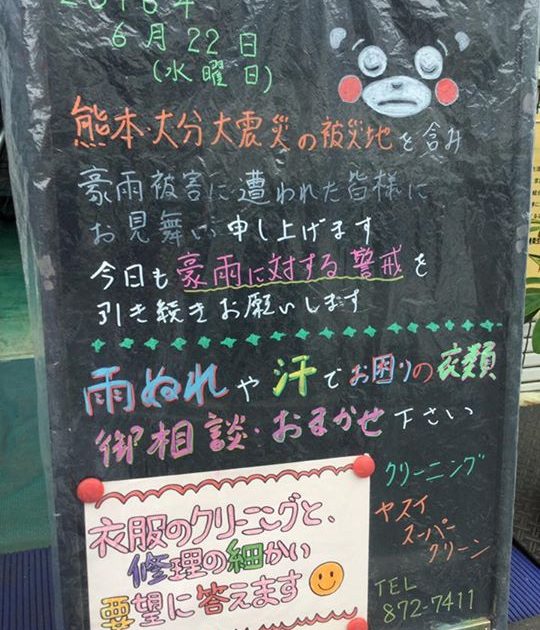 2016年
6月22日
(水曜日)
熊本・大分大震災の被災地を含み
豪雨被害に遭われた皆様に
お見舞い申し上げます
今日も豪雨に対する警戒を
引き続きお願いします
雨ぬれや汗でお困りの衣類
御相談・おまかせ下さい
クリーニング
ヤスイ
スーパー
クリーン
TEL
872-7411
衣服のクリーニングと、
修理の細かい
要望に答えます